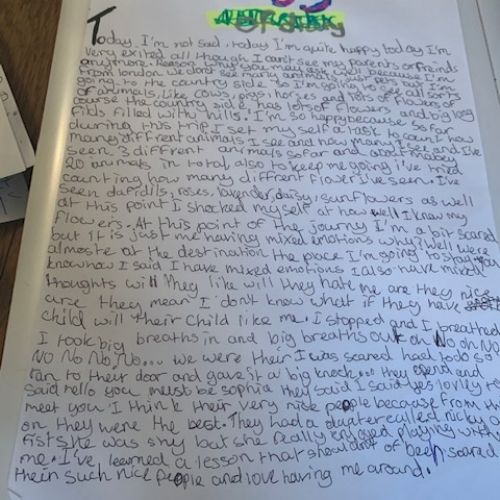 Today I'm not sad, today I'm quite happy today I'm
very exited all though I can't see my parents or freinds
anymore. Reason why you may ask well because I'm
from london we don't see many animals or pets but I'm
going to the country side so I'm going to see all sorts
of animals, like cows, pigs, horses and lots of flowers of
course the country side has lots of flowers and big long
filds filled with hills. I'm so happy because so far
during this trip I set my self a task to count how
many diffrent animals I see and how many I set and I've
seen 3 diffrent animals so far and about mabey
20 animals in total, also to keep me going i've tried
counting how many diffrent flower I've seen. I've
seen dafidils, roses, lavender, daisy, sunflowers as well
at this point I shocked myself at how well I know my
flowers. At this point of the journy I'm a bit scared
but it is just me having mixed emotions why? Well were
almoste at the destination the place I'm going to stay you
know how I said I have mixed emotions I also have mixed
thoughts will they like will they hate me are they nice
or are they mean I don't know what if they have
child will their child like me. I stopped and I breathed
I took big breaths in and big breaths out oh No oh No
No No No, No... we were their I was scared had todo so
ran to their door and gave it a big knock... they opend and
said hello you must be sophia they said I said yes lovley to
meet you I think their very nice people because from then
on they were the best. They had a duahter called nicky at
fist she was shy but she really enjoyed playing with
me. I've learned a lesson that should not of been scared
their such nice people and love having me around.